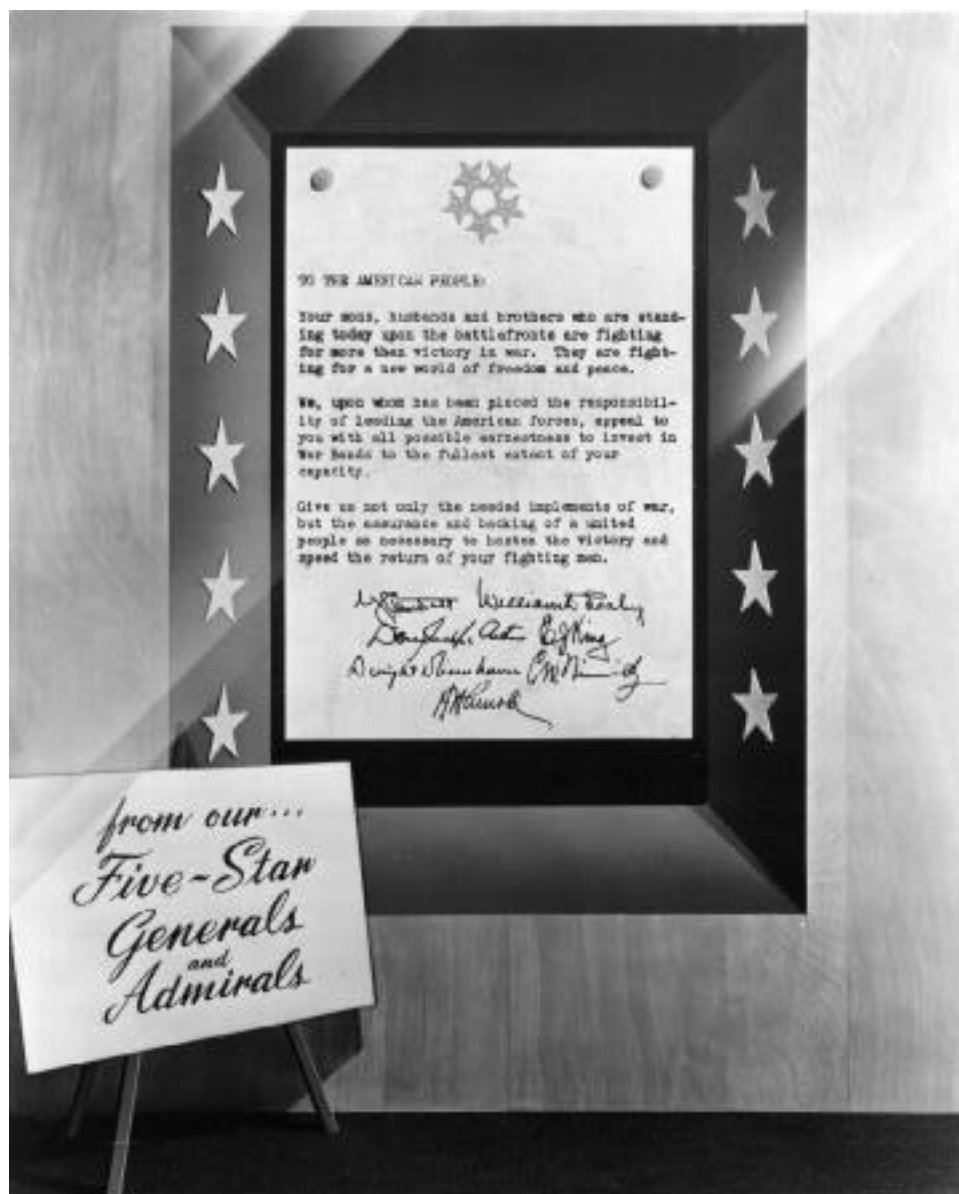 TO THE AMERICAN PEOPLE:
Your sons, husbands and brothers who are stand-
ing today upon the battlefronts are fighting
for more than victory in war. They are fight-
ing for a new world of freedom and peace.
We, upon whom has been placed the responsibil-
ity of leading the American forces, appeal to
you with all possible earnestness to invest in
War Bonds to the fullest extent of your
capacity.
Give us not only the needed implements of war,
but the assurance and backing of a united
people so necessary to hasten the victory and
speed the return of your fighting men.
William D Leahy
Douglas MacArthur E J King
Dwight D Eisenhower C W Nimitz
H H Arnold
from our...
Five-Star
Generals
and
Admirals